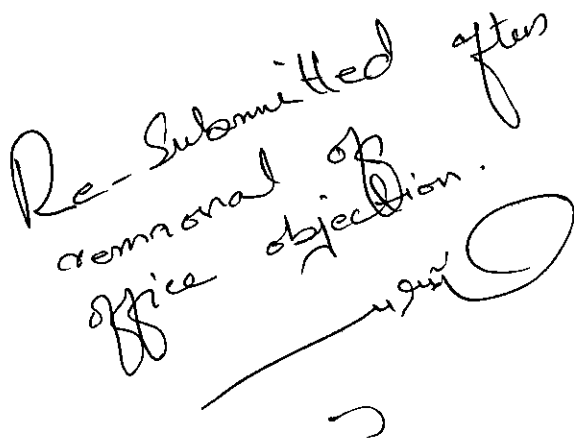 Re-Submitted after
removal of
office objection.